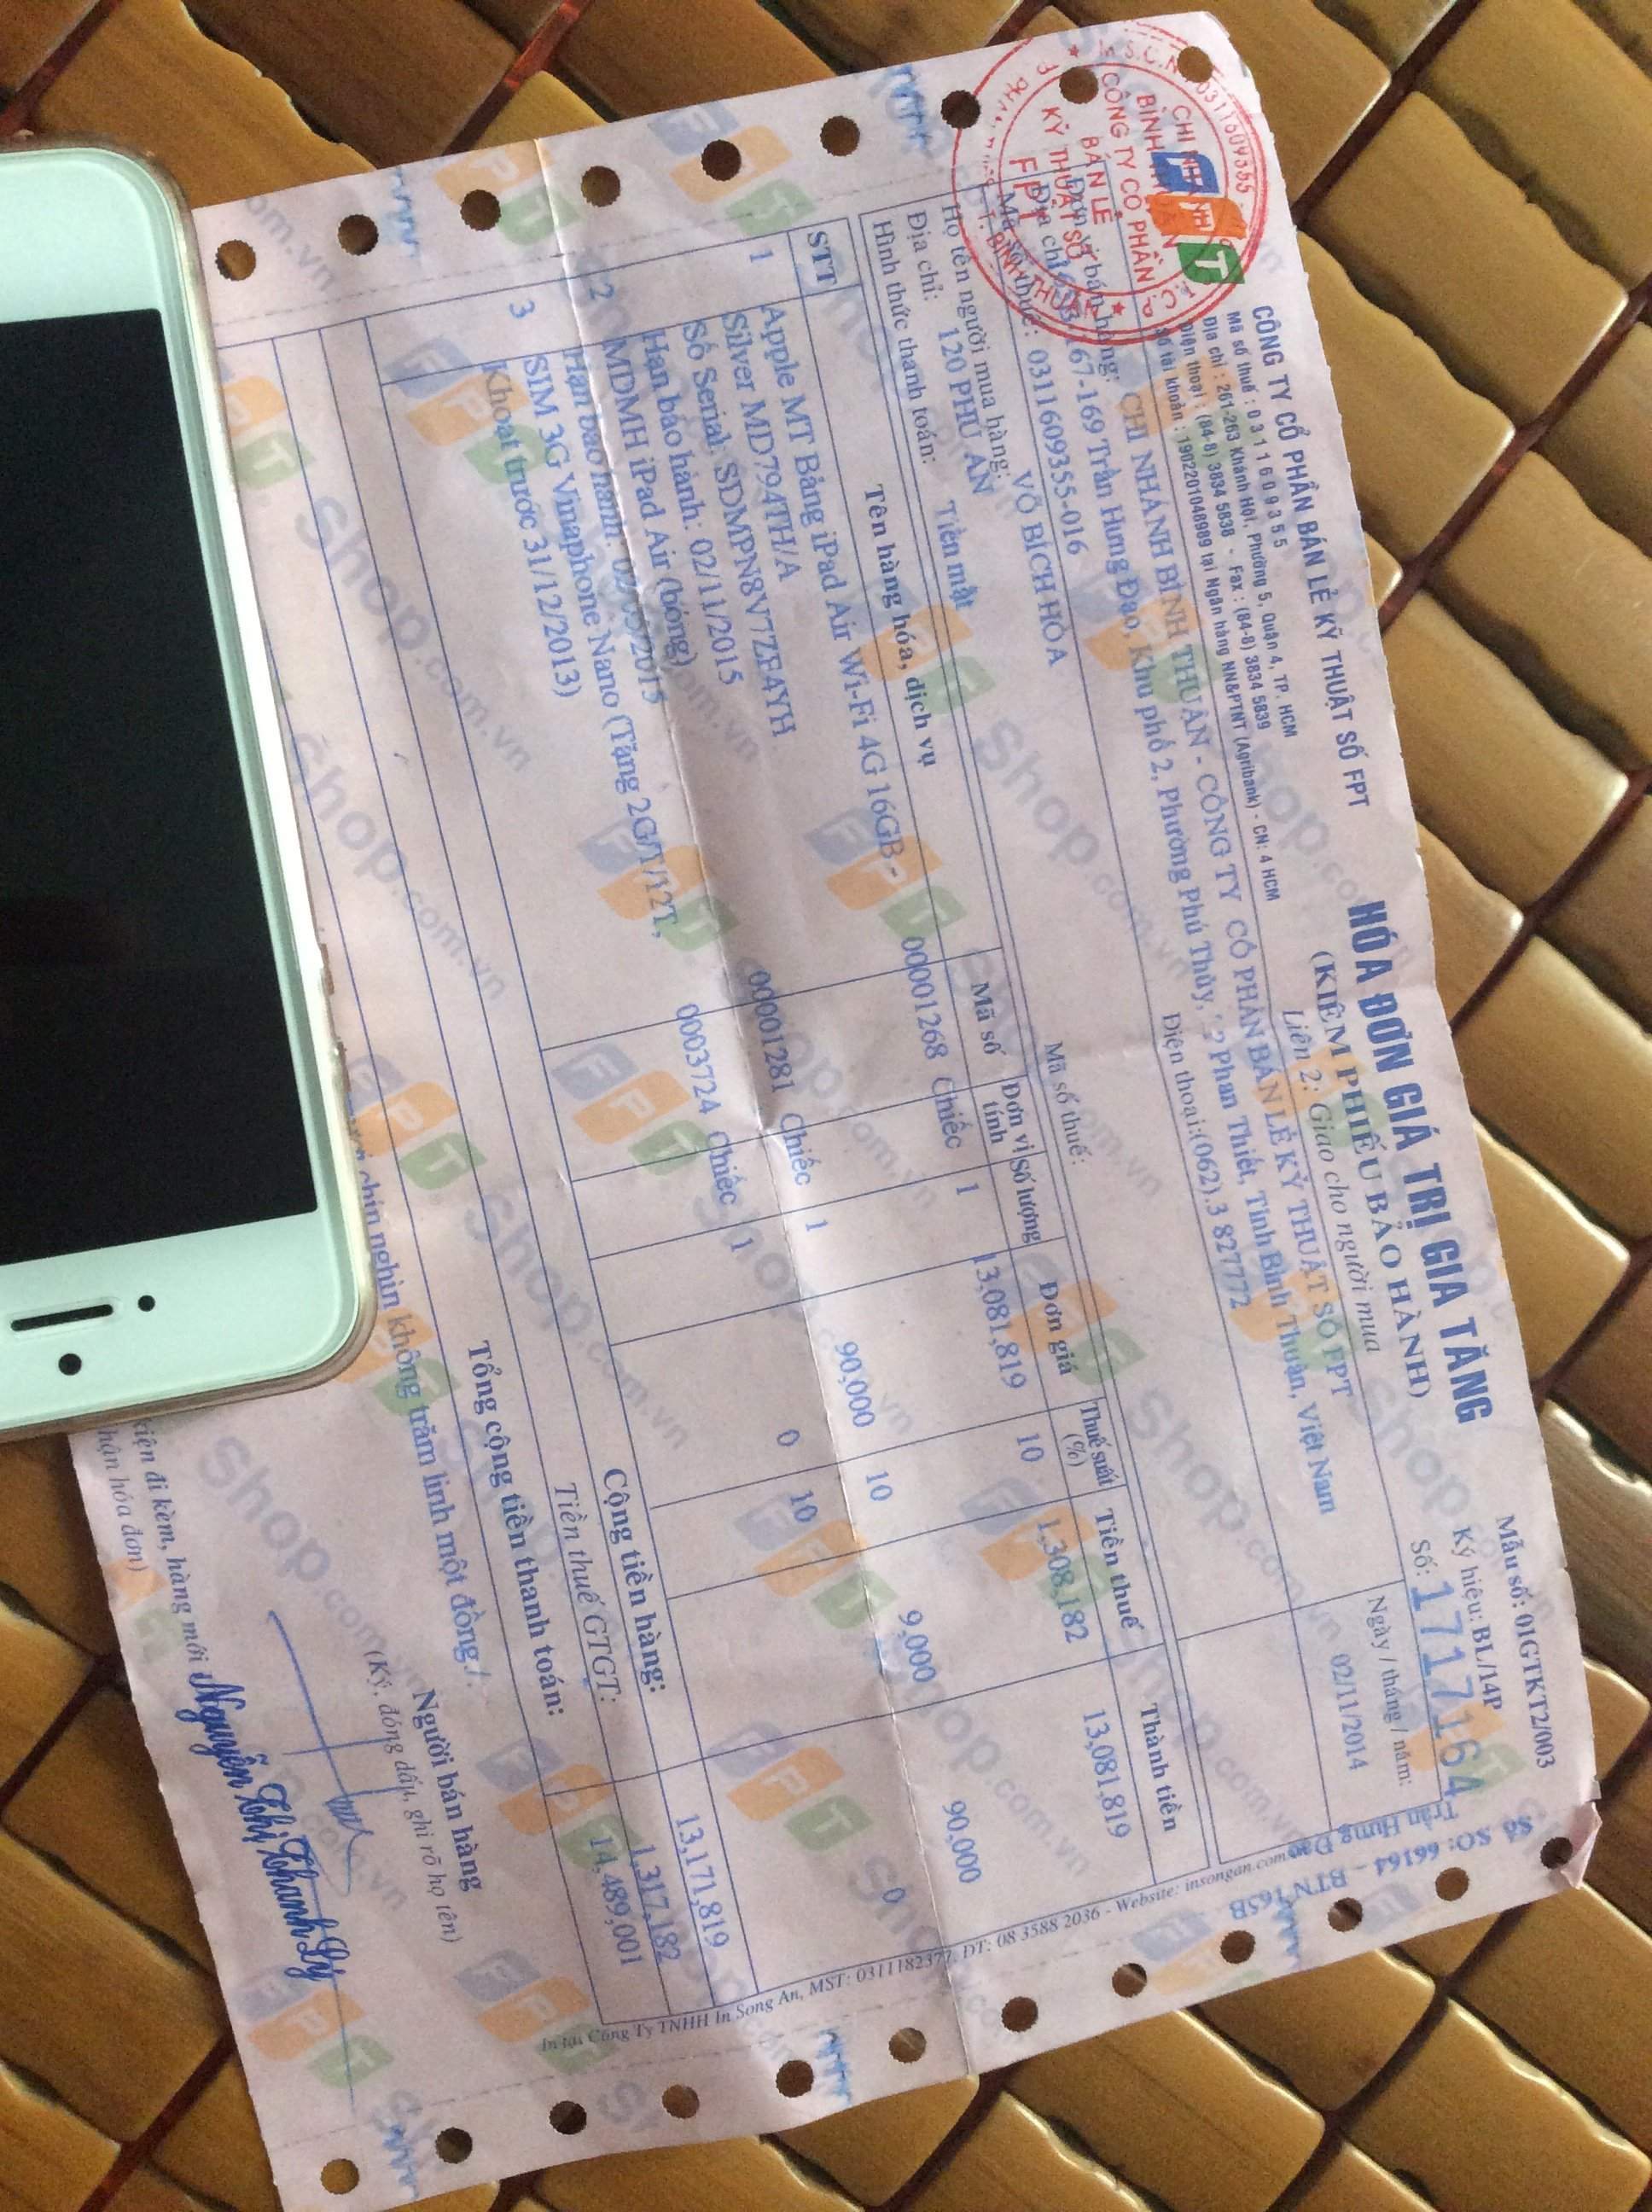 CÔNG TY CỔ PHẦN BÁN LẺ KỸ THUẬT SỐ FPT
Mã số thuế : 0 3 1 1 6 0 9 3 5 5
Địa chỉ : 261-263 Khánh Hội, Phường 5, Quận 4, TP. HCM
Điện thoại : (84-8) 3834 5838 - Fax : (84-8) 3834 5839
Số tài khoản : 1902201048989 tại Ngân hàng NN&PTNT (Agribank) - CN: 4 HCM
HÓA ĐƠN GIÁ TRỊ GIA TĂNG
(KIÊM PHIẾU BẢO HÀNH)
Liên 2: Giao cho người mua
Mẫu số: 01GTKT2/003
Ký hiệu: BL/14P
Số: 17171164
Ngày / tháng / năm:
02/11/2014
Số SO: 66164 - BTN 165B
Trần Hưng Đạo
FPT
M.S.C.N: 0311609355
CHI NHÁNH
BÌNH THUẬN
CÔNG TY CỔ PHẦN
BÁN LẺ
KỸ THUẬT SỐ
FPT
T. BÌNH THUẬN
Đơn vị bán hàng: CHI NHÁNH BÌNH THUẬN - CÔNG TY CỔ PHẦN BÁN LẺ KỸ THUẬT SỐ FPT
Địa chỉ: 167-169 Trần Hưng Đạo, Khu phố 2, Phường Phú Thủy, Phan Thiết, Tỉnh Bình Thuận, Việt Nam
Mã số thuế: 0311609355-016 Điện thoại:(062).3 827772
Họ tên người mua hàng: VÕ BÍCH HÒA
Địa chỉ: 120 PHÚ AN Mã số thuế:
Hình thức thanh toán: Tiền mặt
STT Tên hàng hóa, dịch vụ Mã số Đơn vị tính Số lượng Đơn giá Thuế suất (%) Tiền thuế Thành tiền
1 Apple MT Bảng iPad Air Wi-Fi 4G 16GB - 00001268 Chiếc 1 13,081,819 10 1,308,182 13,081,819
Silver MD794TH/A
Số Serial: SDMPN8V7ZF4YH
Hạn bảo hành: 02/11/2015
2 MDMH iPad Air (bóng) 00001281 Chiếc 1 90,000 10 9,000 90,000
Hạn bảo hành:
3 SIM 3G Vinaphone Nano (Tặng 2G/T/12T, 0003724 Chiếc 1 0 10 0
Khoạt trước 31/12/2013)
Cộng tiền hàng: 13,171,819
Tiền thuế GTGT: 1,317,182
Tổng cộng tiền thanh toán: 14,489,001
chín nghìn không trăm linh một đồng./.
Người bán hàng
(Ký, đóng dấu, ghi rõ họ tên)
kiện đi kèm, hàng mới
nhận hóa đơn)
Nguyễn Thị Thanh Lý
In tại Công Ty TNHH In Song An, MST: 0311182377, ĐT: 08 3588 2036 - Website: insongan.com
FPT Shop.com.vn